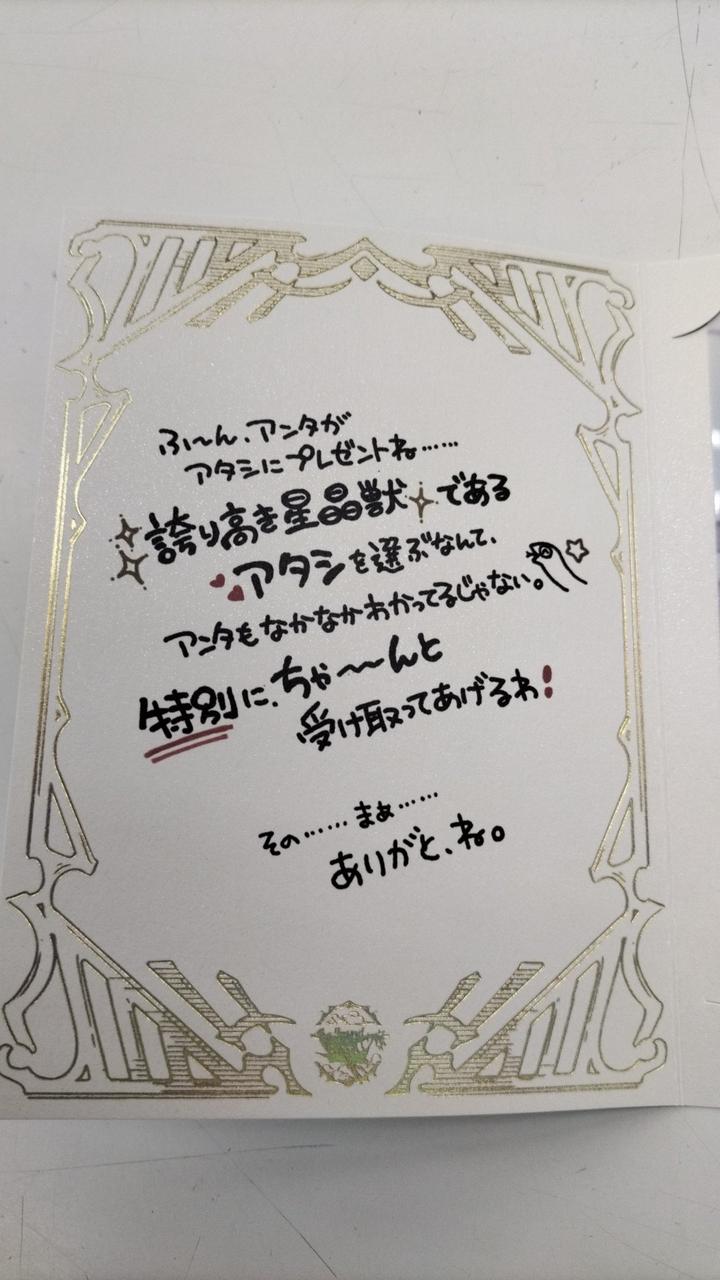 ふ〜ん、アンタが
アタシにプレゼントね……
誇り高き星晶獣である
アタシを選ぶなんて、
アンタもなかなかわかってるじゃない。
特別に、ちゃ〜〜んと
受け取ってあげるわ!
その……まぁ……
ありがと、ね。